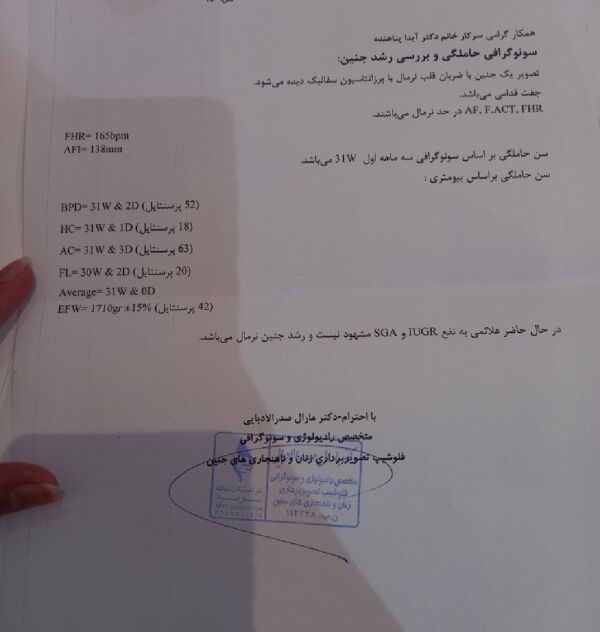 همکار گرامی سرکار خانم دکتر آیدا پناهنده
سونوگرافی حاملگی و بررسی رشد جنین:
تصویر یک جنین با ضربان قلب نرمال با پرزانتاسیون سفالیک دیده می‌شود.
جفت قدامی می‌باشد.
AF, F.ACT, FHR در حد نرمال می‌باشند.
FHR= 165bpm
AFI= 138mm
سن حاملگی بر اساس سونوگرافی سه ماهه اول 31W می‌باشد.
سن حاملگی براساس بیومتری :
BPD= 31W & 2D (52 پرسنتایل)
HC= 31W & 1D (18 پرسنتایل)
AC= 31W & 3D (63 پرسنتایل)
FL= 30W & 2D (20 پرسنتایل)
Average= 31W & 0D
EFW= 1710gr ±15% (42 پرسنتایل)
در حال حاضر علائمی به نفع IUGR و SGA مشهود نیست و رشد جنین نرمال می‌باشد.
با احترام-دکتر مارال صدرالادبایی
متخصص رادیولوژی و سونوگرافی
فلوشیپ تصویربرداری زنان و ناهنجاری های جنین
متخصص رادیولوژی و سونوگرافی
فلوشیپ تصویربرداری
زنان و ناهنجاری های جنین
NEXT GENERATION
POLYCLINIC